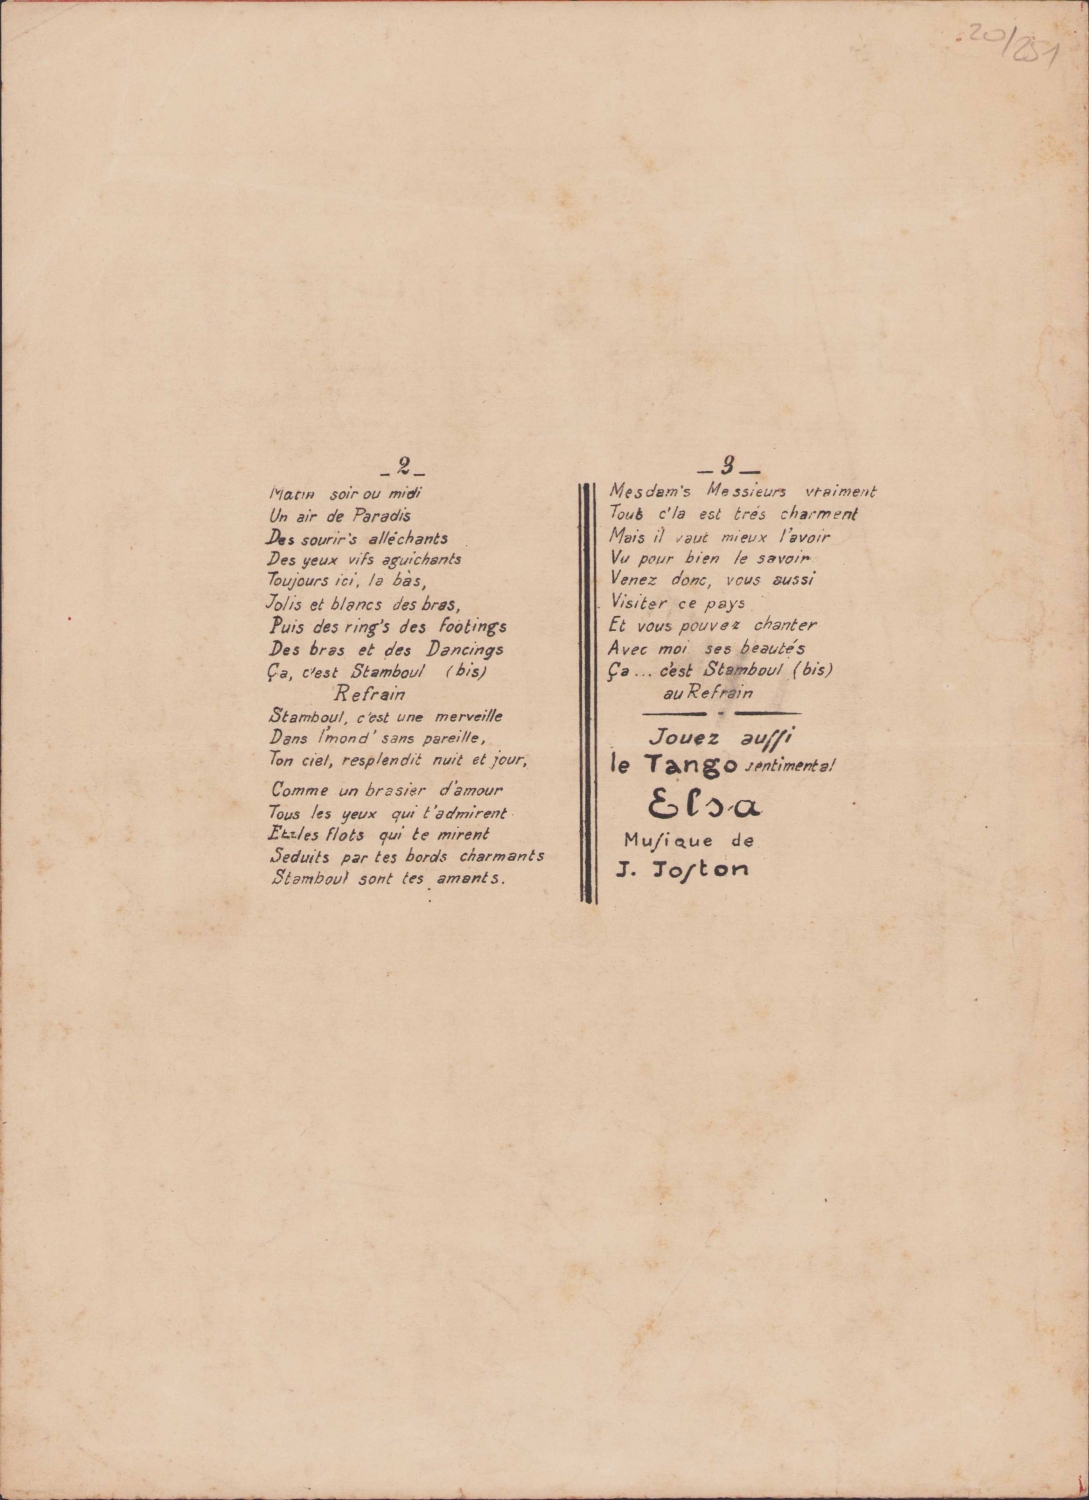 20/251
_2_
Matin soir ou midi
Un air de Paradis
Des sourir's alléchants
Des yeux vifs aguichants
Toujours ici, la bàs,
Jolis et blancs des bras,
Puis des ring's des footings
Des bras et des Dancings
Ça, c'est Stamboul (bis)
Refrain
Stamboul, c'est une merveille
Dans l'mond' sans pareille,
Ton ciel, resplendit nuit et jour,
Comme un brasier d'amour
Tous les yeux qui t'admirent
Et les flots qui te mirent
Seduits par tes bords charmants
Stamboul sont tes amants.
_3_
Mesdam's Messieurs vraiment
Tout c'la est trés charment
Mais il vaut mieux l'avoir
Vu pour bien le savoir
Venez donc, vous aussi
Visiter ce pays
Et vous pouvez chanter
Avec moi ses beautés
Ça... c'est Stamboul (bis)
au Refrain
Jouez auſſi
le Tango sentimental
Elsa
Muſique de
J. Joſton